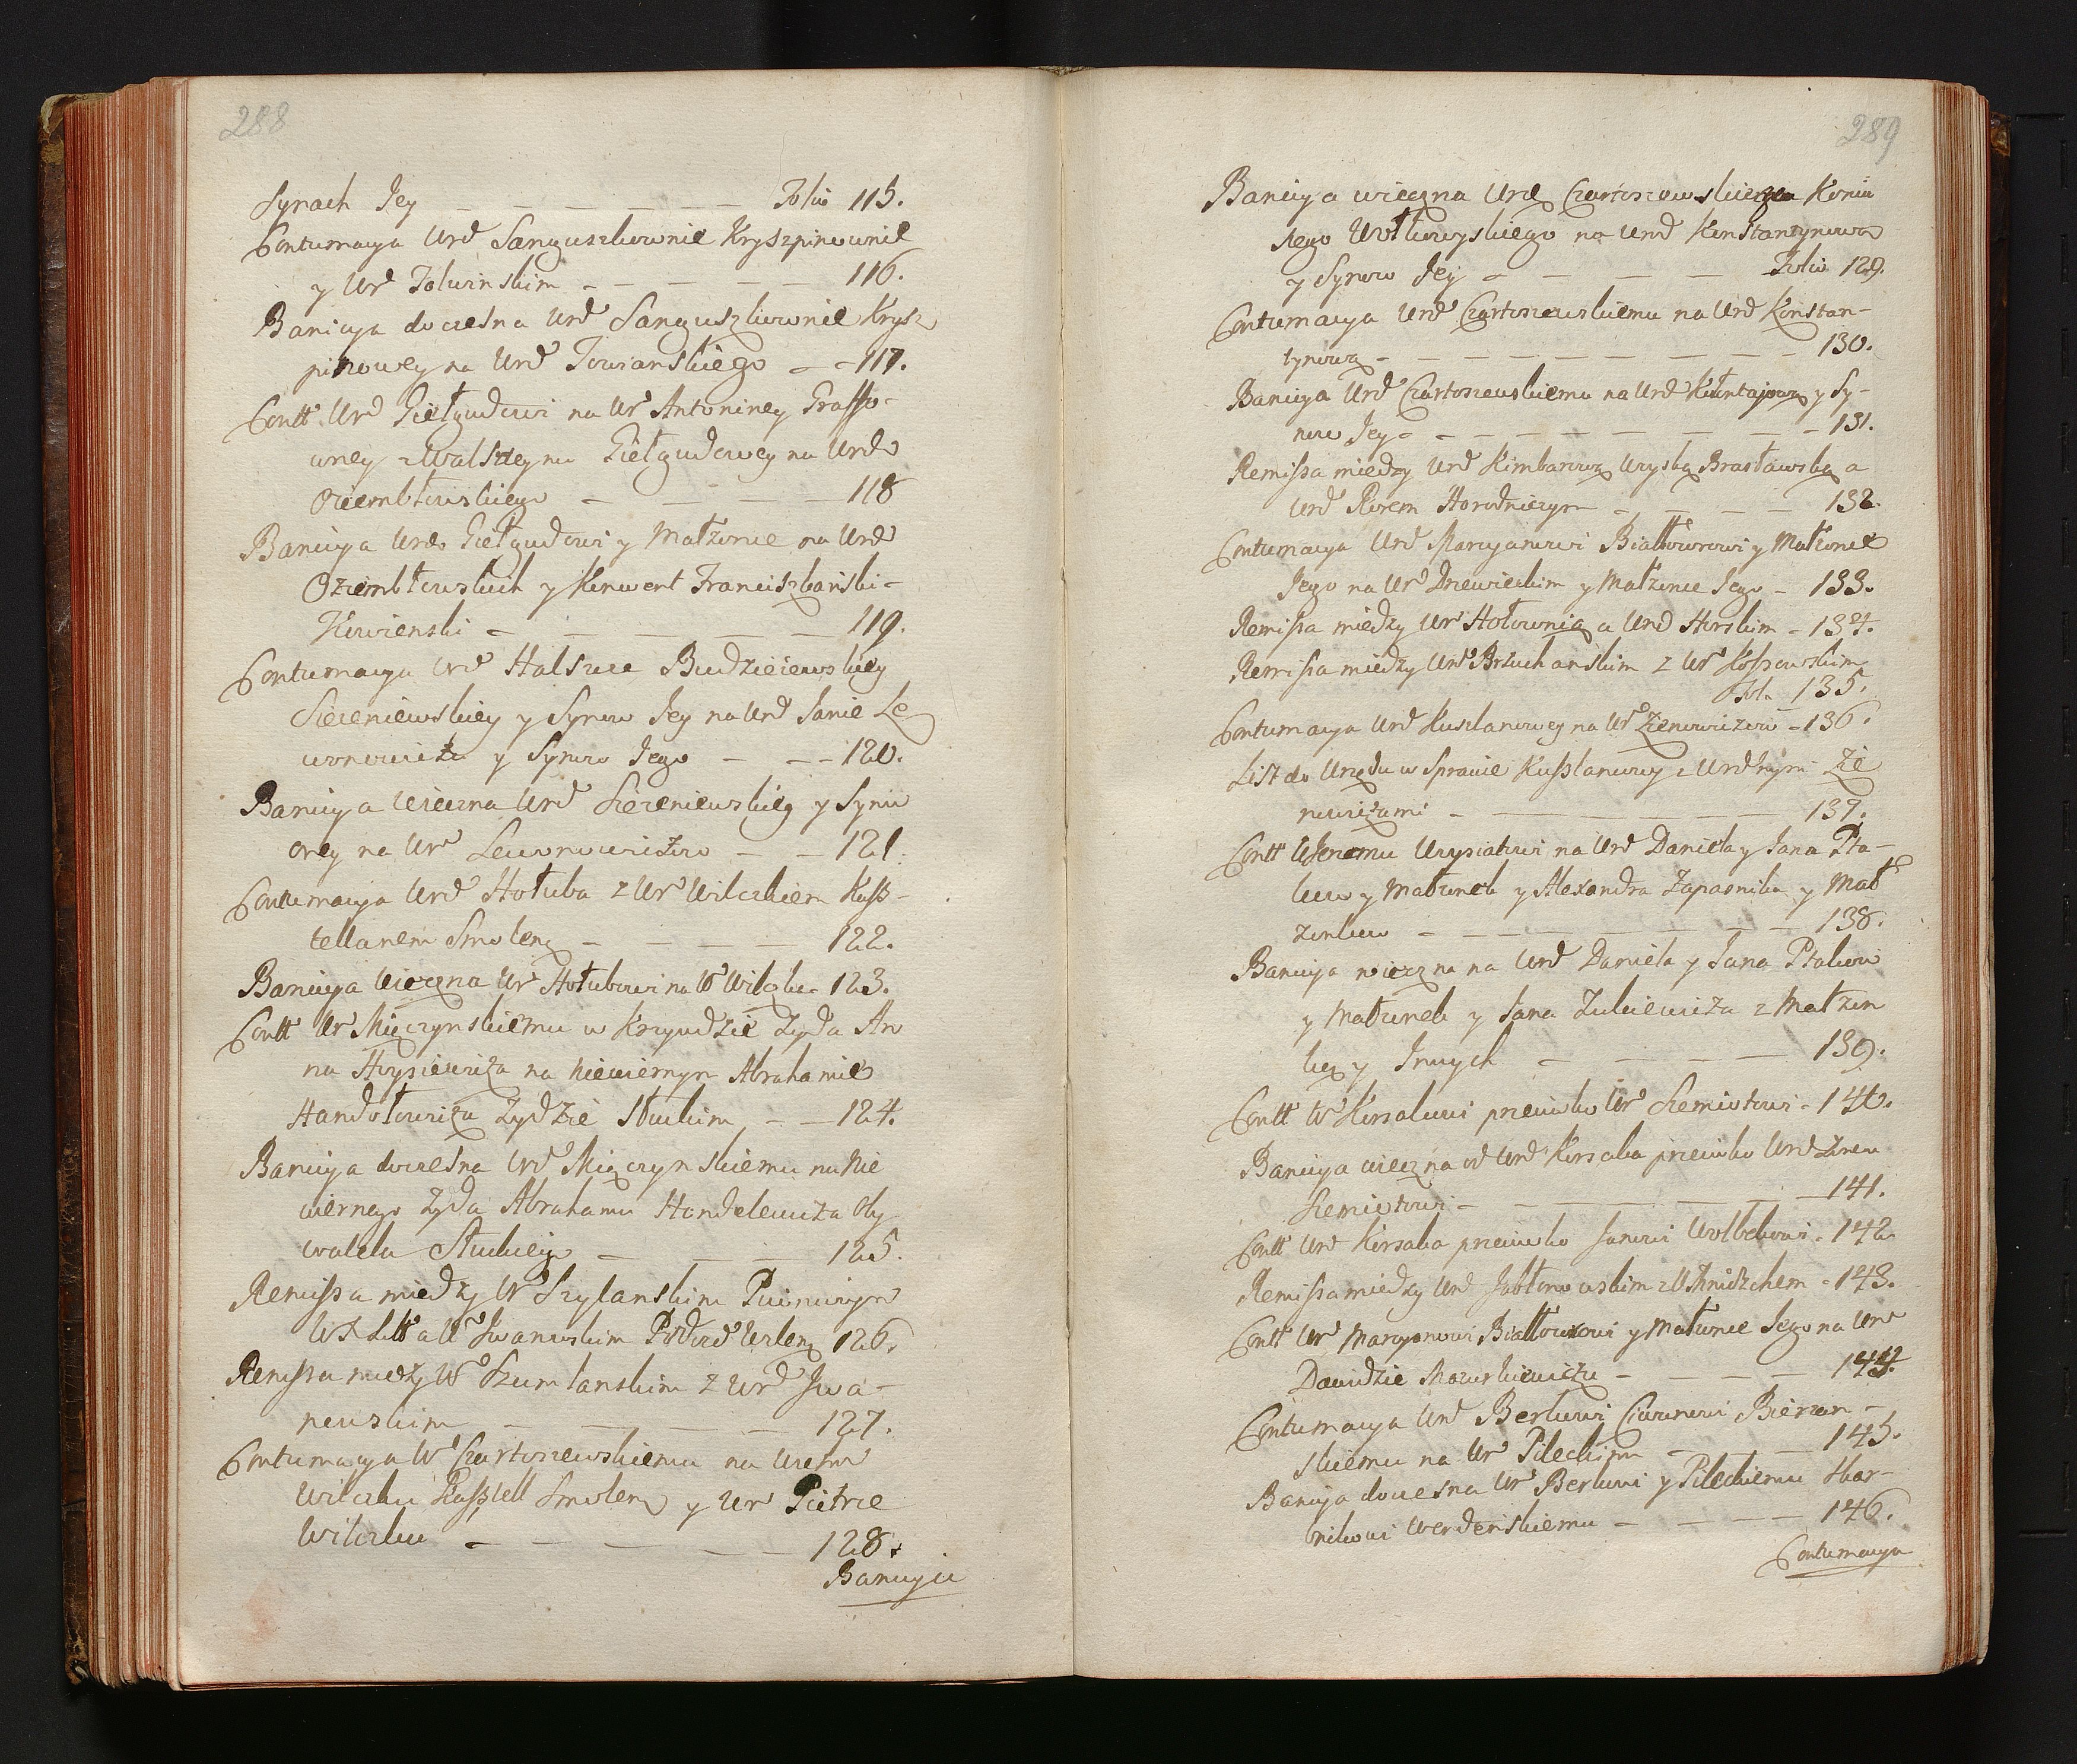 288
Synach Jey – – – – – – Folio 115.
Contumacya Urd Sanguszkownie Kryszpinownie
y Ur Tolwinskim – – – – – 116.
Banicya doczesna Urd Sanguszkownie Krysz
pinowey na Urd Towianskiego – – 117.
Contt Urd Giełgudowi na Ur Antoniney Grasso-
wney z Walsztejnu Giełgudowey na Urd
Oziembłowskiego – – – – 118
Banicya Urd Giełgudowi y Małzonce na Urd
Oziembłowskich y Konwent Franciszkański-
Kowienski – – – – – 119.
Contumacya Urd Halszce Budziszewskiey
Siezeniewskiey y Synow Jey na Urd Janie Le
wonowiczu y Synow Jego – – – 120.
Banicya Wieczna Urd Siezeniewskiey y Synu
oney na Ur Lewonowiczow – – 121.
Contumacya Urd Hołuba z Ur Wilczkiem Kasz-
tellanem Smolenz – – – – 122.
Banicya Wieczna Ur Hołubowi na W Wilczku 123.
Contt Ur Mięczynskiemu w Krzywdzie Zyda An
na Hryszewicza na niewiernym Abrahamie
Handołowiczu Zydzie Słuckim – – 124.
Banicya doczesna Urd Mięczynskiemu na Nie
wiernego Zyda Abrahama Handelewicza Oby
watela Słuckiey – – – 125.
Remissa między Ur Szylanskim Puiniczym
WX Litt a Ur Jwanowskim Podwd Wilenz 126.
Remissa między W Szumlanskim z Urd Jwa-
nowskim – – – – 127.
Contumacya W Czartoszewskiemu na Urdm
Wilczku Kasztell Smolenz y Ur Pietrze
Wilczku – – – – – 128.
Banicyia
289
Banicya wieczna Urd Czartoszewskiego Koniu
szego Wołkowyskiego na Urd Konstantynową
y Synow Jey – – – – – Folio 129.
Contumacya Urd Czartoszewskiemu na Urd Konstan-
tynową – – – – – – – – 130.
Banicya Urd Czartoszewskiemu na Urd Kołłontajową y Sy-
now Jey – – – – – – – – 131.
Remissa między Urd Kimbarową Woyską Brasławską a
Urd Rosem Horodniczym – – – – 132.
Contumacya Urd Marcyanowi Białłozorowi y Małzonce
Jego na Ur Drzewieckim y Małzonce Jego – 133.
Remissa między Ur Hołownią a Urd Horskim – 134.
Remissa między Urd Brzuchanskim z Ur Kossowskim
Fol. 135.
Contumacya Urd Kuszlanowey na Ur Zienowiczow – 136.
List do Urzędu w Sprawie Kuszlanowey z Urdnymi Zie
nowiczami – – – – – – 137.
Contt WJeremu Urysiatowi na Urd Daniela y Jana Pta-
kow y Małzonek y Alexandra Zapasnika y Mał
zonkow – – – – – – – 138.
Banicya wieczna na Urd Daniela y Jana Ptakow
y Małzonek y Jana Zukiewicza z Małzon
ką y Jnnych – – – – – 139.
Contt W Korsakowi przeciwko Ur Siemiotowi – 140.
Banicya wieczna od Urd Korsaka przeciwko Urd Janem
Siemiotowi – – – – – – 141.
Contt Urd Korsaka przeciwko Janowi Wolbekowi – 142.
Remissa między Urd Jabłonowskim z Ur Schmidzchem – 143.
Contt Ur Marcyanowi Białłozorowi y Małzonce Jego na Ur
Dawidzie Mazurkiewiczu – – – – 144.
Contumacya Urd Berkowi Ciwunowi Bierzan-
skiemu na Ur Pileckim – – – 145.
Banicya doczesna Ur Berkowi y Pileckiemu Skar-
nikowi Werdenskiemu – – – – 146.
Contumacya